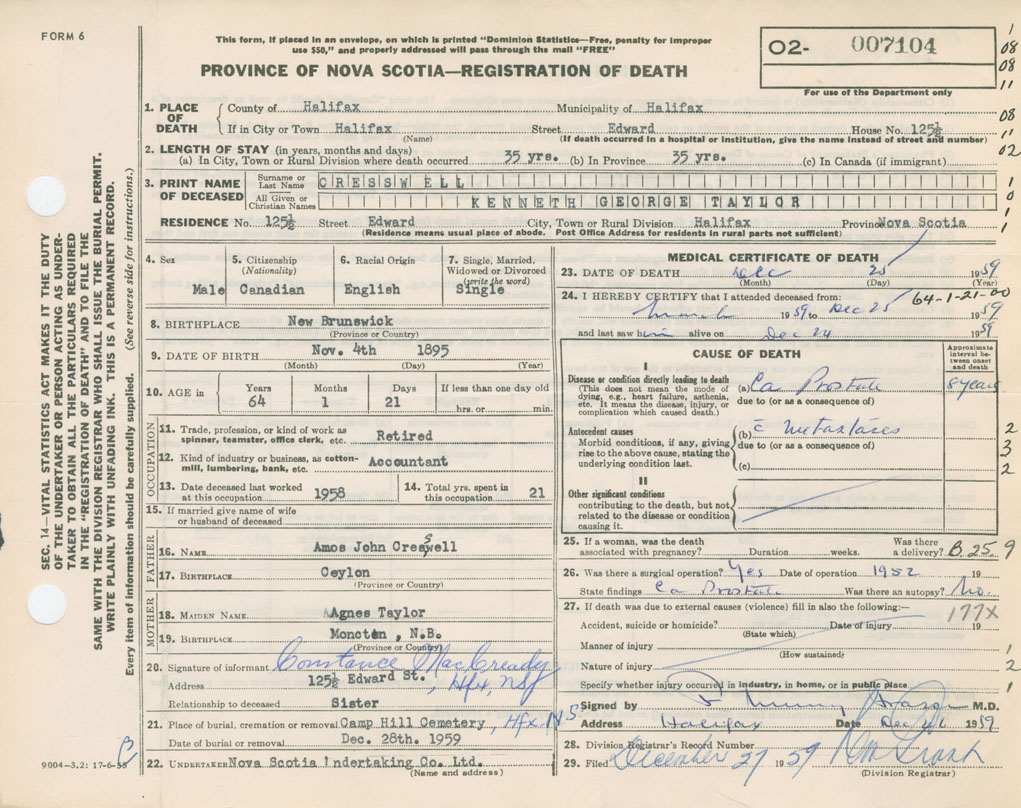 FORM 6
This form, if placed in an envelope, on which is printed "Dominion Statistics—Free, penalty for improper
use $50," and properly addressed will pass through the mail "FREE"
PROVINCE OF NOVA SCOTIA—REGISTRATION OF DEATH
02- 007104
For use of the Department only
1. PLACE OF DEATH
County of Halifax Municipality of Halifax
If in City or Town Halifax Street Edward House No. 125½
(Name) (If death occurred in a hospital or institution, give the name instead of street and number)
2. LENGTH OF STAY (in years, months and days)
(a) In City, Town or Rural Division where death occurred 35 yrs. (b) In Province 35 yrs. (c) In Canada (if immigrant)
3. PRINT NAME OF DECEASED
Surname or Last Name CRESSWELL
All Given or Christian Names KENNETH GEORGE TAYLOR
RESIDENCE No. 125½ Street Edward City, Town or Rural Division Halifax Province Nova Scotia
(Residence means usual place of abode. Post Office Address for residents in rural parts not sufficient)
4. Sex Male
5. Citizenship (Nationality) Canadian
6. Racial Origin English
7. Single, Married, Widowed or Divorced (write the word) Single
8. BIRTHPLACE New Brunswick
(Province or Country)
9. DATE OF BIRTH Nov. 4th 1895
(Month) (Day) (Year)
10. AGE in Years 64 Months 1 Days 21 If less than one day old hrs. or min.
OCCUPATION
11. Trade, profession, or kind of work as spinner, teamster, office clerk, etc. Retired
12. Kind of industry or business, as cotton-mill, lumbering, bank, etc. Accountant
13. Date deceased last worked at this occupation 1958
14. Total yrs. spent in this occupation 21
15. If married give name of wife or husband of deceased
FATHER
16. NAME Amos John Cresswell
17. BIRTHPLACE Ceylon
(Province or Country)
MOTHER
18. MAIDEN NAME Agnes Taylor
19. BIRTHPLACE Moncton, N.B.
(Province or Country)
20. Signature of informant Constance MacCready
Address 125½ Edward St., Hfx, NS
Relationship to deceased Sister
21. Place of burial, cremation or removal Camp Hill Cemetery, Hfx NS
Date of burial or removal Dec. 28th. 1959
22. UNDERTAKER Nova Scotia Undertaking Co. Ltd.
(Name and address)
MEDICAL CERTIFICATE OF DEATH
23. DATE OF DEATH Dec 25 1959
(Month) (Day) (Year)
24. I HEREBY CERTIFY that I attended deceased from: 64-1-21-00
March 1959 to Dec 25 1959
and last saw him alive on Dec 24 1959
CAUSE OF DEATH
Approximate interval between onset and death
I
Disease or condition directly leading to death
(This does not mean the mode of dying, e.g., heart failure, asthenia, etc. It means the disease, injury, or complication which caused death.)
(a) Ca Prostate 8 years
due to (or as a consequence of)
Antecedent causes
Morbid conditions, if any, giving rise to the above cause, stating the underlying condition last.
(b) c̄ metastases
due to (or as a consequence of)
(c)
II
Other significant conditions
contributing to the death, but not related to the disease or condition causing it.
25. If a woman, was the death associated with pregnancy? Duration weeks. Was there a delivery? B.25.9
26. Was there a surgical operation? Yes Date of operation 1952 19
State findings Ca Prostate Was there an autopsy? No.
27. If death was due to external causes (violence) fill in also the following:— 177X
Accident, suicide or homicide? Date of injury 19
(State which)
Manner of injury
(How sustained)
Nature of injury
Specify whether injury occurred in industry, in home, or in public place
Signed by M.D.
Address Halifax Date Dec 26 1959
28. Division Registrar's Record Number
29. Filed December 27 1959
(Division Registrar)
SEC. 14—VITAL STATISTICS ACT MAKES IT THE DUTY
OF THE UNDERTAKER OR PERSON ACTING AS UNDER-
TAKER TO OBTAIN ALL THE PARTICULARS REQUIRED
IN THE "REGISTRATION OF DEATH" AND TO FILE THE
SAME WITH THE DIVISION REGISTRAR WHO SHALL ISSUE THE BURIAL PERMIT.
WRITE PLAINLY WITH UNFADING INK. THIS IS A PERMANENT RECORD.
Every item of information should be carefully supplied. (See reverse side for instructions.)
9004—3.2: 17-6-55
1
08
08
11
08
11
02
1
0
1
1
2
3
2
1
2
1